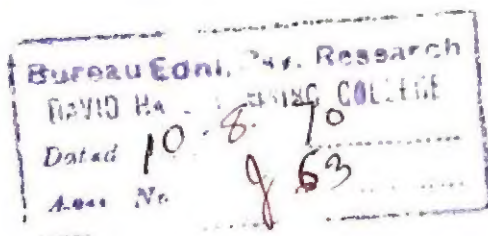 Bureau Ednl. Psy. Research
DAVID HA COLLEGE
Dated 10.8.70
No 63